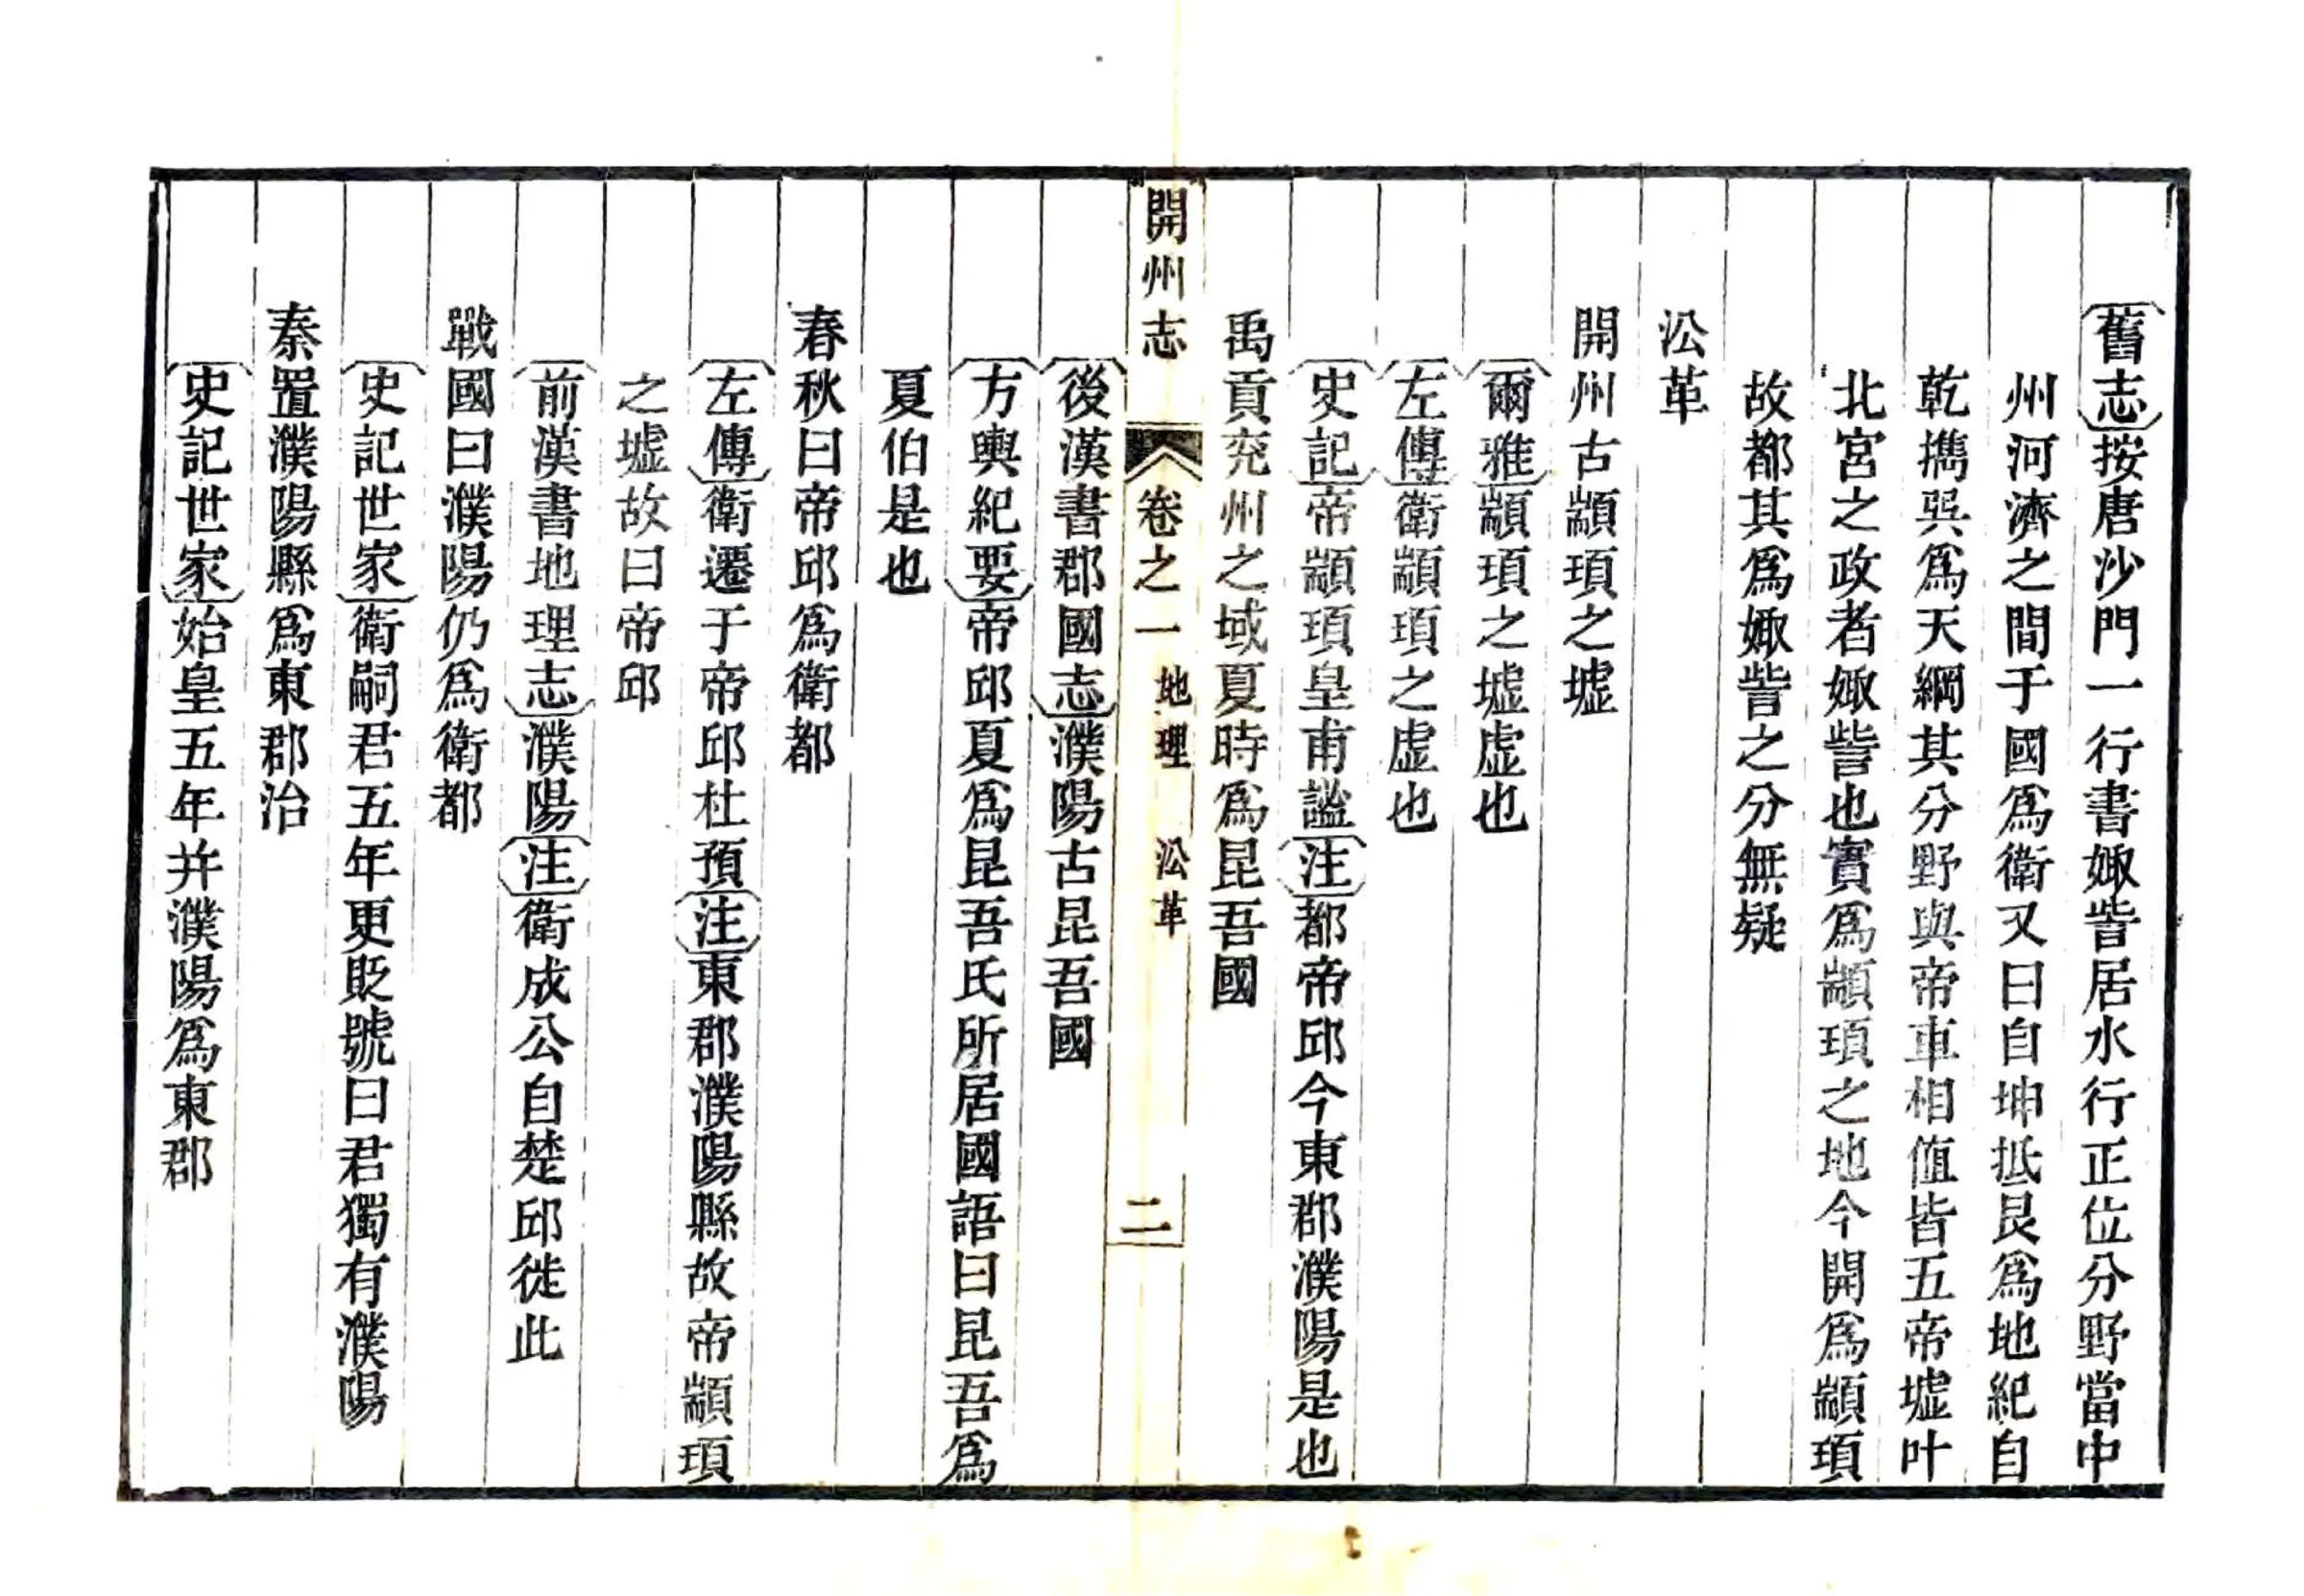 舊志按唐沙門一行書娵訾居水行正位分野當中
州河濟之間于國爲衛又曰自坤抵艮爲地紀自
乾攜巽爲天綱其分野與帝車相値皆五帝墟叶
北宮之政者娵訾也實爲顓頊之地今開爲顓頊
故都其爲娵訾之分無疑
㳂革
開州古顓頊之墟
爾雅顓頊之墟虛也
左傳衛顓頊之虛也
史記帝顓頊皇甫謐注都帝邱今東郡濮陽是也
禹貢兖州之域夏時爲昆吾國
開州志 卷之一 地理 㳂革 二
後漢書郡國志濮陽古昆吾國
方輿紀要帝邱夏爲昆吾氏所居國語曰昆吾爲
夏伯是也
春秋曰帝邱爲衛都
左傳衛遷于帝邱杜預注東郡濮陽縣故帝顓頊
之墟故曰帝邱
前漢書地理志濮陽注衛成公自楚邱徙此
戰國曰濮陽仍爲衛都
史記世家衛嗣君五年更貶號曰君獨有濮陽
秦置濮陽縣爲東郡治
史記世家始皇五年并濮陽爲東郡